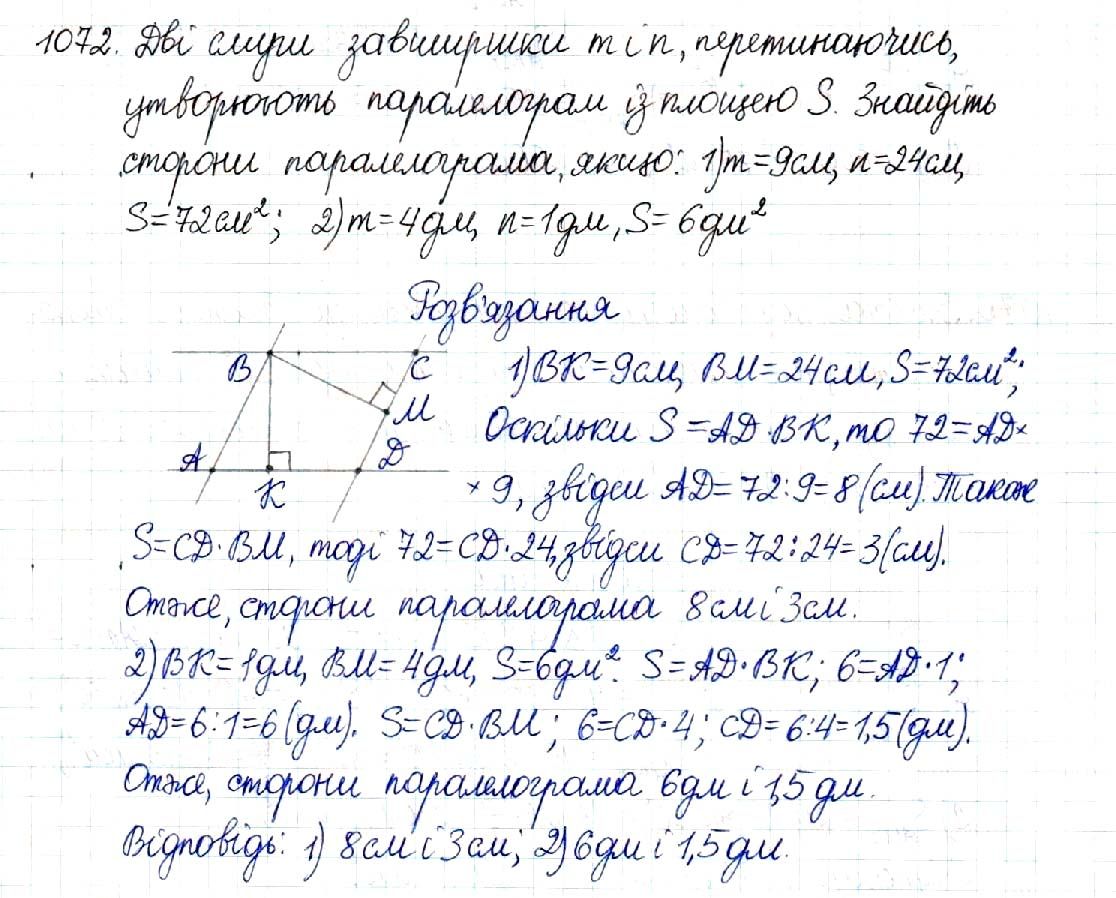 1072. Дві смуги завширшки m і n, перетинаючись,
утворюють паралелограм із площею S. Знайдіть
сторони паралелограма, якщо: 1) m = 9см, n = 24см,
S = 72см²; 2) m = 4дм, n = 1дм, S = 6дм²
Розв'язання
B C M A K D
1) BK = 9см, BM = 24см, S = 72см²;
Оскільки S = AD · BK, то 72 = AD×
× 9, звідси AD = 72 : 9 = 8 (см). Також
S = CD · BM, тоді 72 = CD · 24, звідси CD = 72 : 24 = 3 (см).
Отже, сторони паралелограма 8см і 3см.
2) BK = 1дм, BM = 4дм, S = 6дм². S = AD · BK; 6 = AD · 1;
AD = 6 : 1 = 6 (дм). S = CD · BM; 6 = CD · 4; CD = 6 : 4 = 1,5 (дм).
Отже, сторони паралелограма 6дм і 1,5 дм.
Відповідь: 1) 8см і 3см; 2) 6дм і 1,5дм.